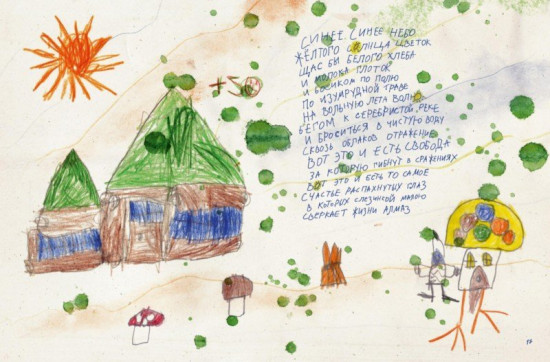 СИНЕЕ, СИНЕЕ НЕБО
ЖЁЛТОГО СОЛНЦА ЦВЕТОК
ЩАС БЫ БЕЛОГО ХЛЕБА
И МОЛОКА ГЛОТОК
И БОСИКОМ ПО ПОЛЮ
ПО ИЗУМРУДНОЙ ТРАВЕ
НА ВОЛЬНУЮ ЛЕТА ВОЛЮ
БЕГОМ К СЕРЕБРИСТОЙ РЕКЕ
И БРОСИТЬСЯ В ЧИСТУЮ ВОДУ
СКВОЗЬ ОБЛАКОВ ОТРАЖЕНИЕ
ВОТ ЭТО И ЕСТЬ СВОБОДА
ЗА КОТОРУЮ ГИБНУТ В СРАЖЕНИЯХ
ВОТ ЭТО И ЕСТЬ ТО САМОЕ
СЧАСТЬЕ РАСПАХНУТЫХ ГЛАЗ
В КОТОРЫХ СЛЕЗИНКОЙ МАЛОЮ
СВЕРКАЕТ ЖИЗНИ АЛМАЗ